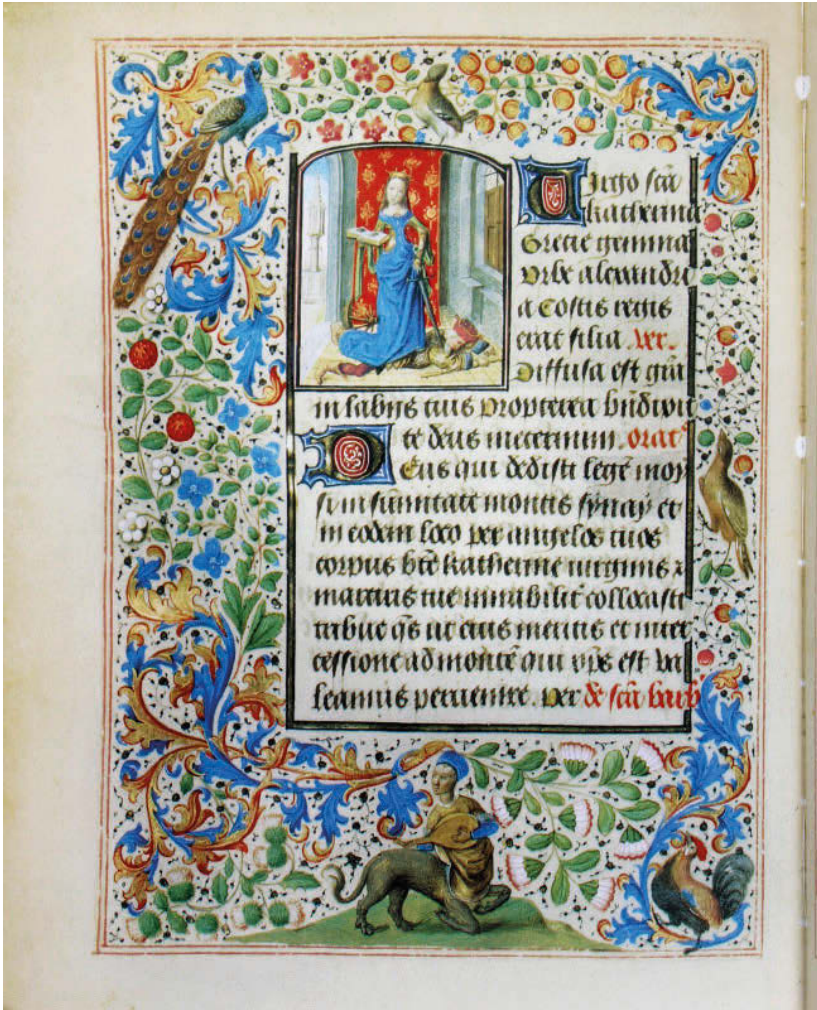 Virgo scā
katherina
Grecie gemma
Vrbe alexandri
a Costis regis
erat filia .ver.
Diffusa est grā
in labijs tuis Propterea bn̄dixit
te deus ineternum. orat̄
Deus qui dedisti legē moy
si in sūmitate montis synay et
in eodem loco per angelos tuos
corpus btē katherine uirginis ⁊
martiris tue mirabilit̄ collocasti
tribue q̄s ut eius meritis et inter
cessione ad montē qui xp̄s est va
leamus peruenire. per de scā barb